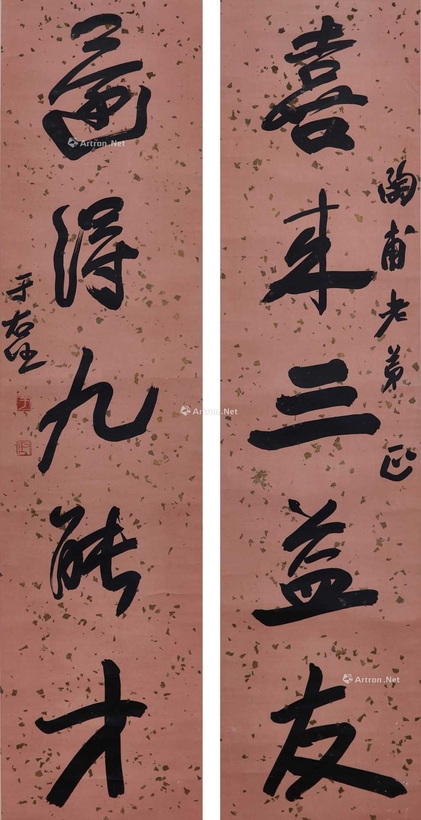 陶甫老弟 正
喜来三益友
得九能才
于右任
Artron.Net
Artron.Net
Artron.Net